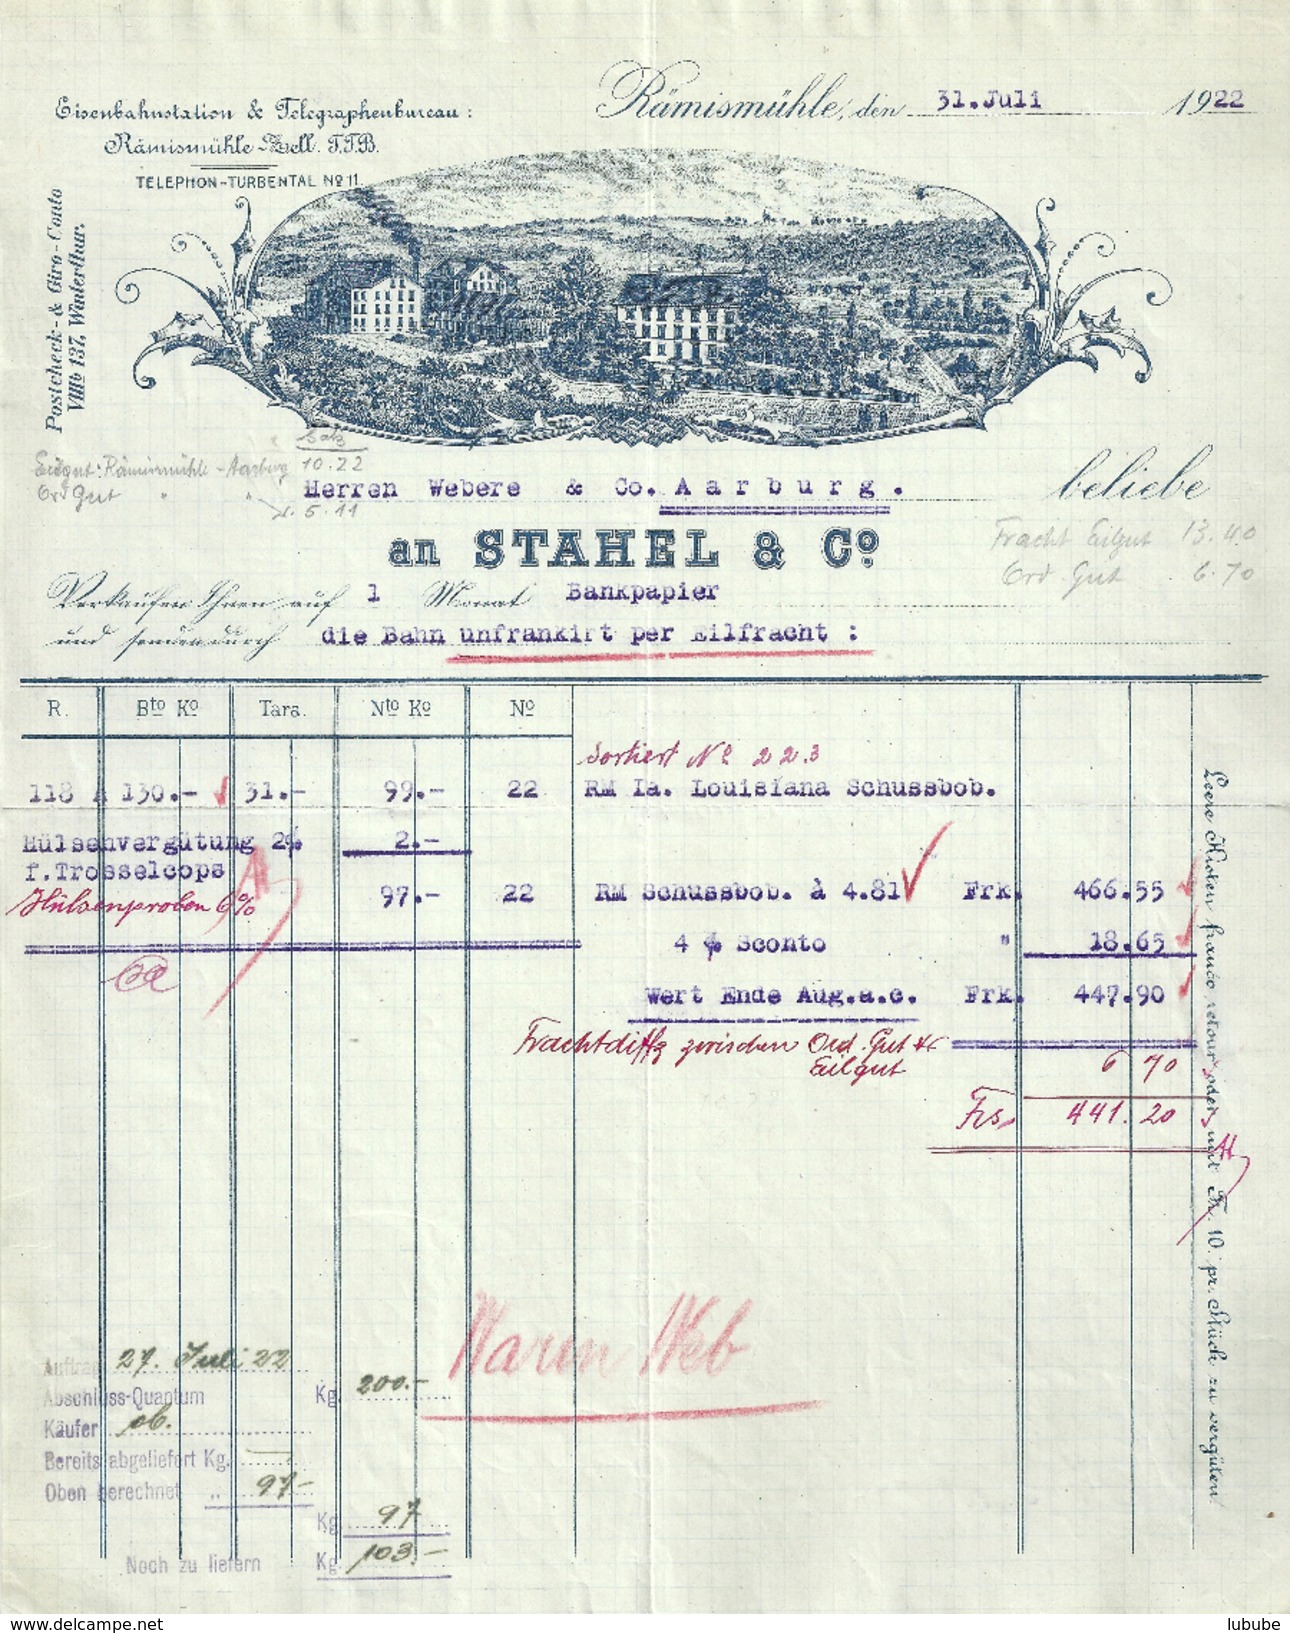 Rämismühle, den 31.Juli 1922
Eisenbahnstation & Telegraphenbureau:
Rämismühle-Zell. T.T.B.
TELEPHON-TURBENTAL Nº 11.
Postcheck- & Giro-Conto
VIIIb 137, Winterthur.
Satz
Eilgut: Rämismühle - Aarburg 10.22
Ord Gut " " 5.11
Herren Webere & Co. Aarburg. beliebe
an STAHEL & Cº.
Fracht Eilgut 13.40
Ord. Gut 6.70
Verkaufen Ihnen auf 1 Monat Bankpapier
und senden durch die Bahn unfrankirt per Eilfracht :
R. Bto Ko Tara. Nto Ko Nº
Sortiert Nº 223
118 A 130.- 31.- 99.- 22 RM Ia. Louisiana Schussbob.
Hülsenvergütung 2% 2.-
f.Trosselcops
97.- 22 RM Schussbob. à 4.81 Frk. 466.55
Hülsenproben 6%
4 % Sconto " 18.65
Wert Ende Aug.a.c. Frk. 447.90
Frachtdiffz zwischen Ord. Gut &
Eilgut 6 70
Frs. 441.20
Leere Kisten franco retour oder mit Fr. 10. pr. Stück zu vergüten.
Waren Web
Auftrag 27. Juli 22
Abschluss-Quantum Kg. 200.-
Käufer ob.
Bereits abgeliefert Kg. —
Oben gerechnet „ 97-
Kg. 97
Noch zu liefern Kg. 103.-
lubube